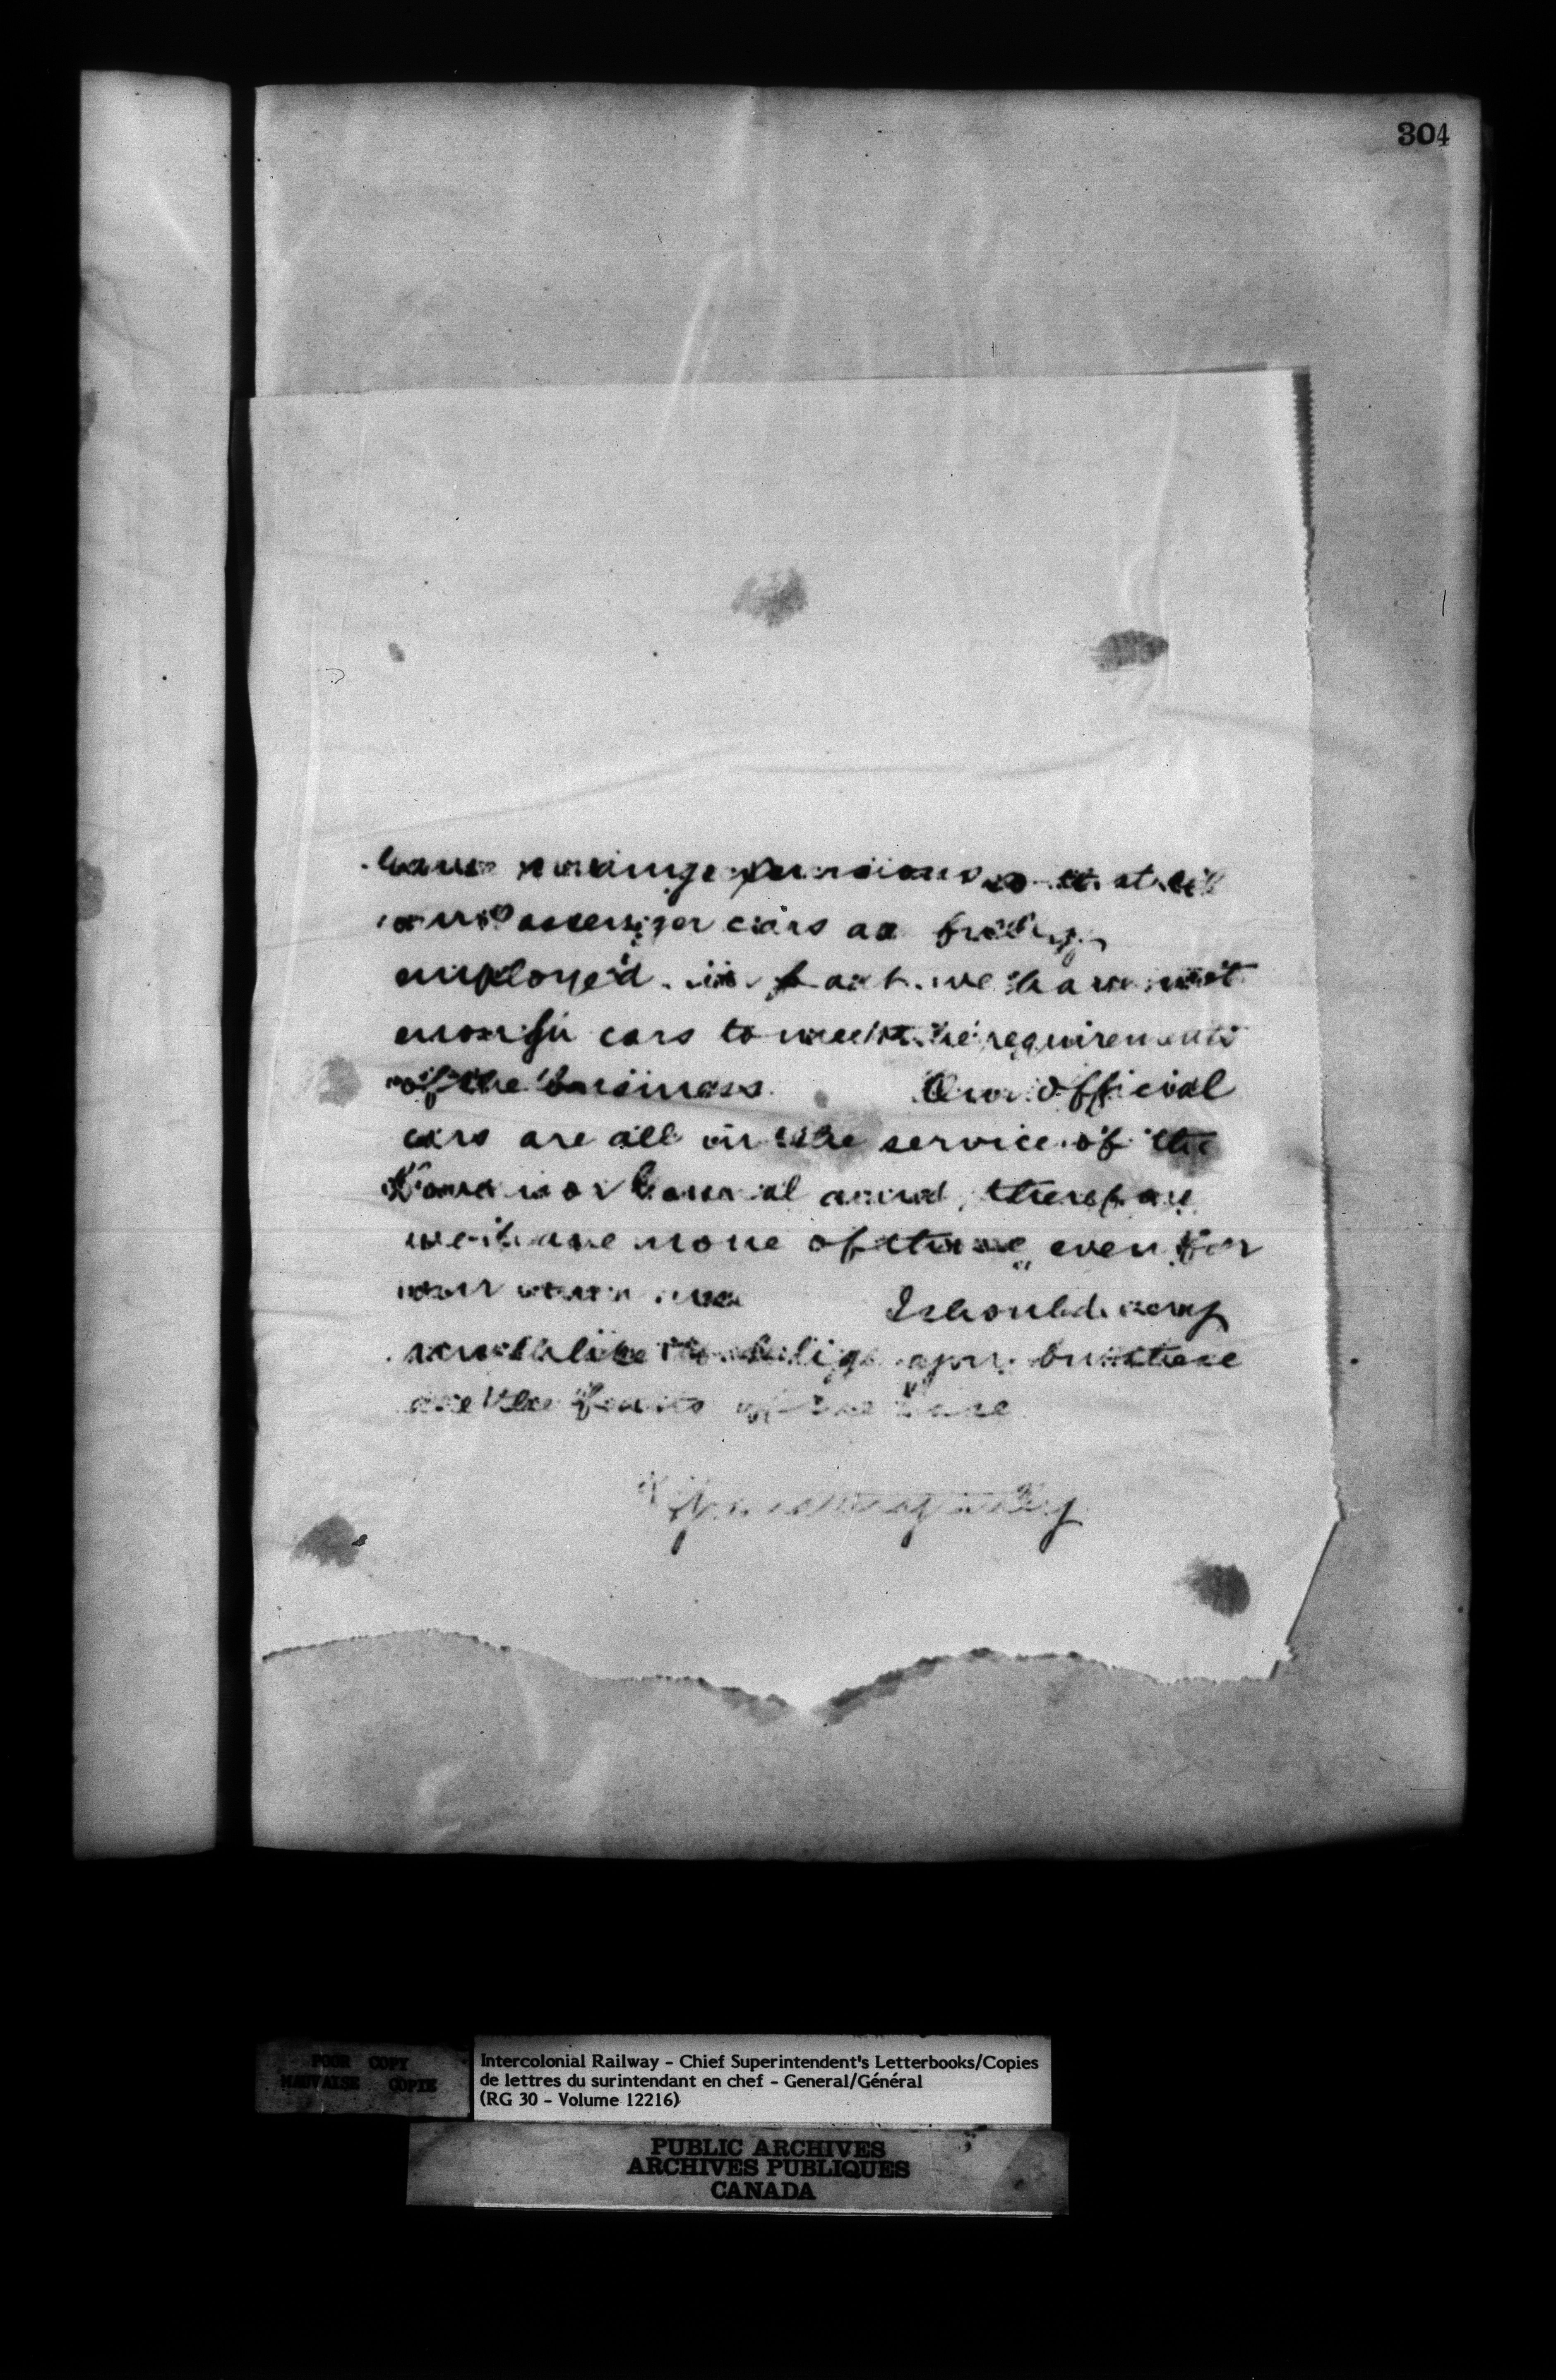 304
have so that all
our passenger cars are fully
employed. in fact we have not
enough cars to meet the requirements
of the business. Our official
cars are all in the service of the
Governor General and, therefore
we have none of them even for
our own use I should very
much like to oblige you but these
are the facts of the case
POOR COPY
MAUVAISE COPIE
Intercolonial Railway - Chief Superintendent's Letterbooks/Copies
de lettres du surintendant en chef - General/Général
(RG 30 - Volume 12216)
PUBLIC ARCHIVES
ARCHIVES PUBLIQUES
CANADA